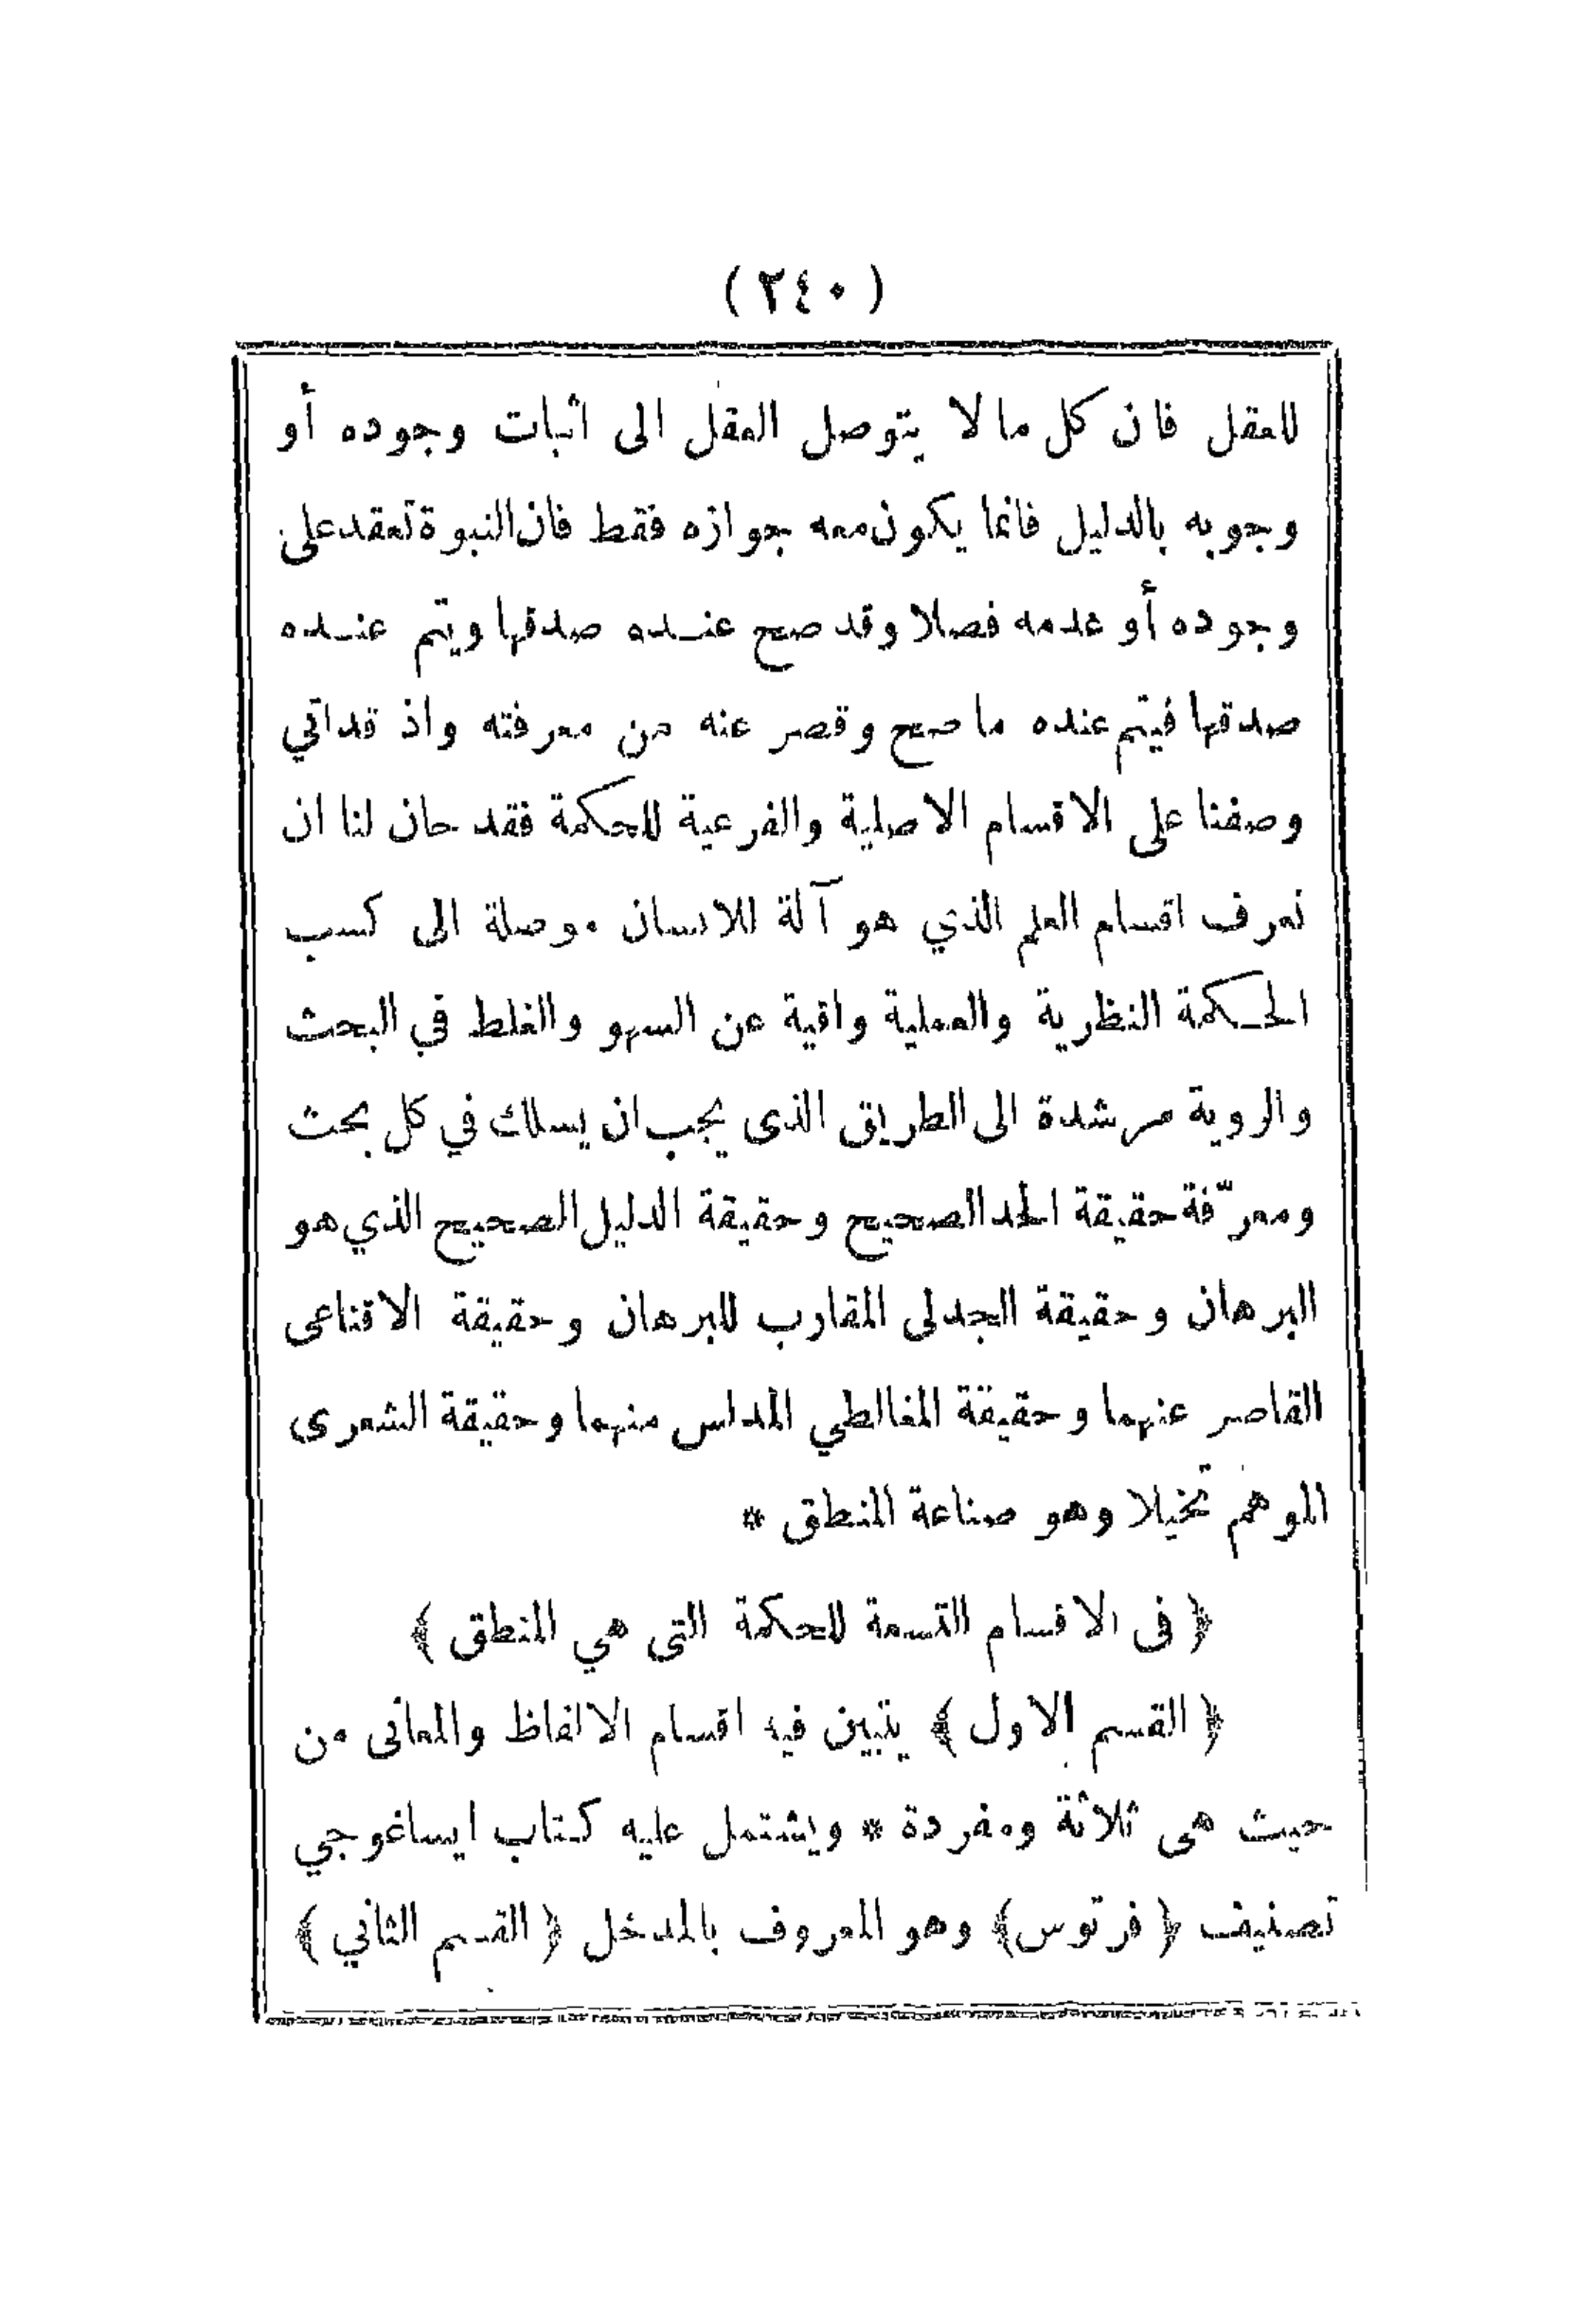 ( ٢٤٠ )
للعقل فان كل ما لا يتوصل العقل الى اثبات وجوده أو
وجوبه بالدليل فانما يكون معه جوازه فقط فان النبوة تعقد على
وجوده أو عدمه فصلا وقد صح عنده صدقها ويتم عنده
صدقها فيتم عنده ما صح وقصر عنه من معرفته واذ قد اتي
وصفنا على الاقسام الاصلية والفرعية للحكمة فقد حان لنا ان
نعرف اقسام العلم الذي هو آلة للانسان موصلة الى كسب
الحكمة النظرية والعملية واقية عن السهو والغلط في البحث
والروية مرشدة الى الطريق الذى يجب ان يسلك في كل بحث
ومعرّفة حقيقة الحد الصحيح وحقيقة الدليل الصحيح الذي هو
البرهان وحقيقة الجدلى المقارب للبرهان وحقيقة الاقناعى
القاصر عنهما وحقيقة المغالطي المدلس منهما وحقيقة الشعرى
الموهم تخيلا وهو صناعة المنطق *
﴿ فى الاقسام التسعة للحكمة التى هي المنطق ﴾
﴿ القسم الاول ﴾ يتبين فيه اقسام الالفاظ والمعانى من
حيث هى ثلاثة ومفردة * ويشتمل عليه كتاب ايساغوجي
تصنيف ﴿ فرتوس ﴾ وهو المعروف بالمدخل ﴿ القسم الثاني ﴾